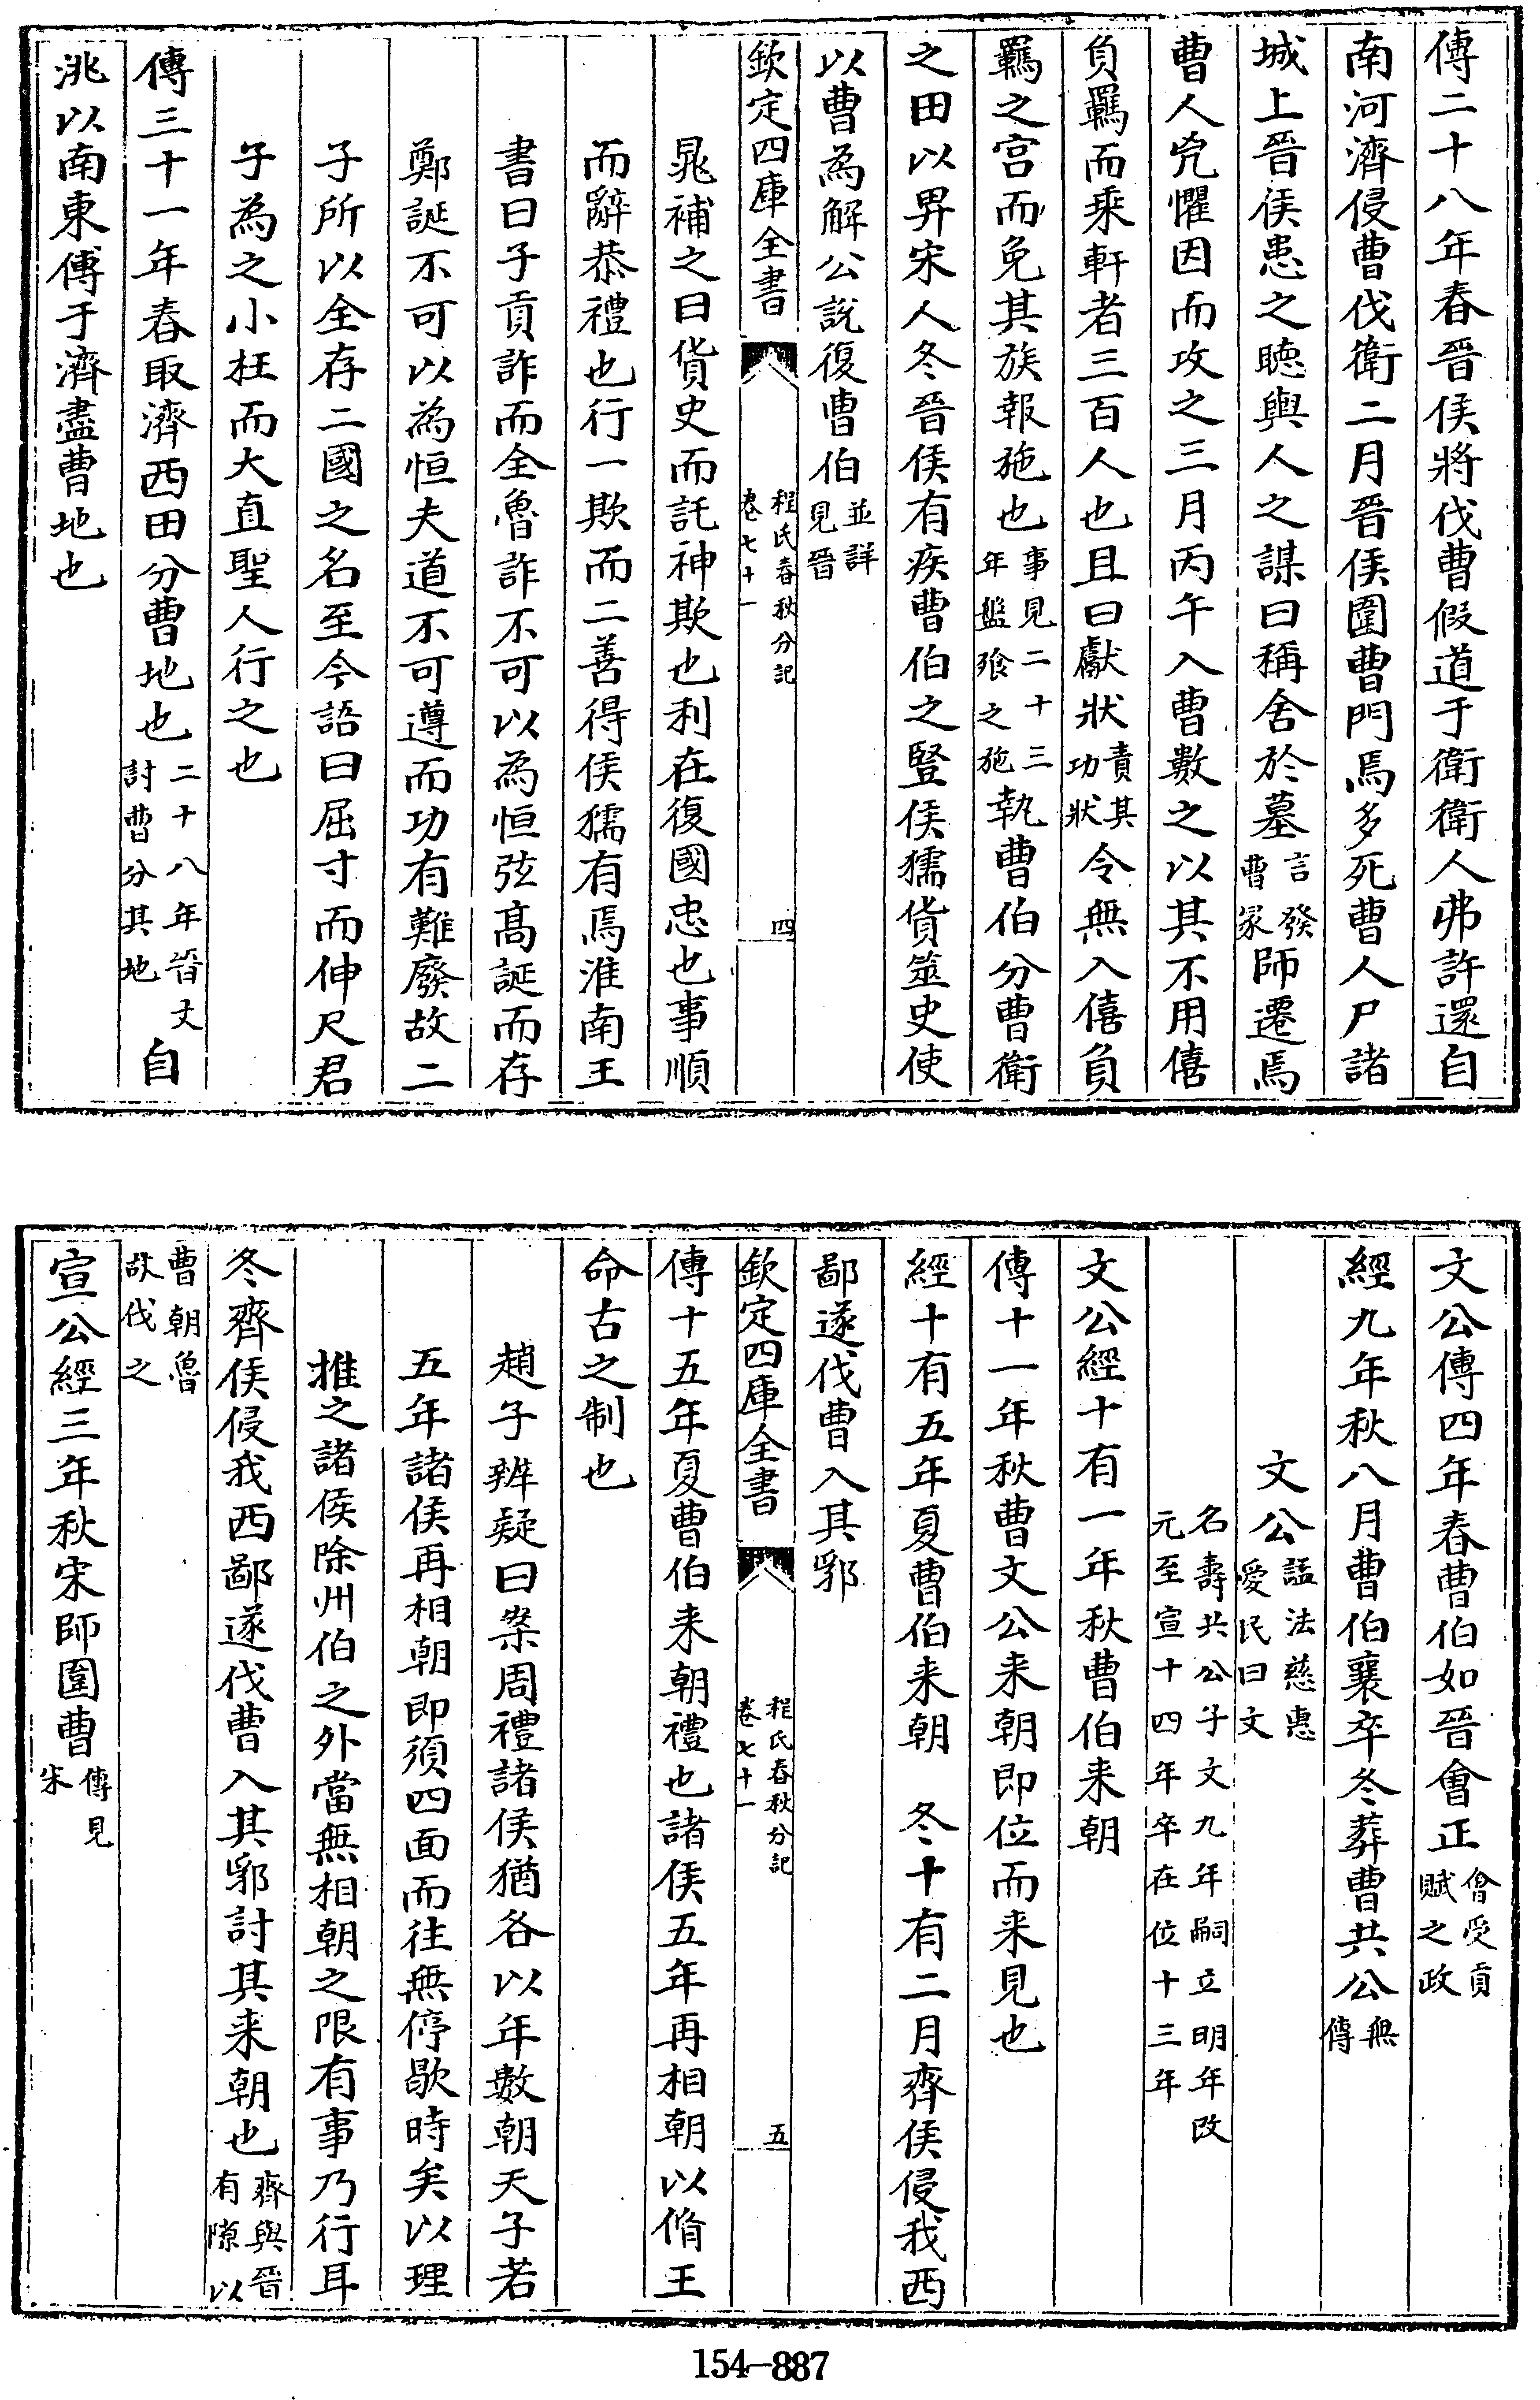 傳二十八年春晉侯將伐曹假道于衛衛人弗許還自
南河濟侵曹伐衛二月晉侯圍曹門焉多死曹人尸諸
城上晉侯患之聴輿人之謀曰稱舍於墓言發曹冡師遷焉
曹人兇懼因而攻之三月丙午入曹數之以其不用僖
負羈而乘軒者三百人也且曰獻狀責其功狀令無入僖負
羈之宫而免其族報施也事見二十三年盤飱之施執曹伯分曹衛
之田以畀宋人冬晉侯有疾曹伯之豎侯獳貨筮史使
以曹為解公説復曹伯並詳見晉
欽定四庫全書
程氏春秋分記
卷七十一
四
晁補之曰貨史而託神欺也利在復國忠也事順
而辭恭禮也行一欺而二善得侯獳有焉淮南王
書曰子貢詐而全魯詐不可以為恒弦髙誕而存
鄭誕不可以為恒夫道不可遵而功有難廢故二
子所以全存二國之名至今語曰屈寸而伸尺君
子為之小枉而大直聖人行之也
傳三十一年春取濟西田分曹地也二十八年晉文討曹分其地自
洮以南東傅于濟盡曹地也
文公傳四年春曹伯如晉會正會受貢賦之政
經九年秋八月曹伯襄卒冬葬曹共公無傳
文公諡法慈惠愛民曰文
名壽共公子文九年嗣立明年改
元至宣十四年卒在位十三年
文公經十有一年秋曹伯来朝
傳十一年秋曹文公来朝即位而来見也
經十有五年夏曹伯来朝　冬十有二月齊侯侵我西
鄙遂伐曹入其郛
欽定四庫全書
程氏春秋分記
卷七十一
五
傳十五年夏曹伯来朝禮也諸侯五年再相朝以脩王
命古之制也
趙子辨疑曰案周禮諸侯猶各以年數朝天子若
五年諸侯再相朝即須四面而往無停歇時矣以理
推之諸侯除州伯之外當無相朝之限有事乃行耳
冬齊侯侵我西鄙遂伐曹入其郛討其来朝也齊與晉有隙以
曹朝魯故伐之
宣公經三年秋宋師圍曹傳見宋
154-887